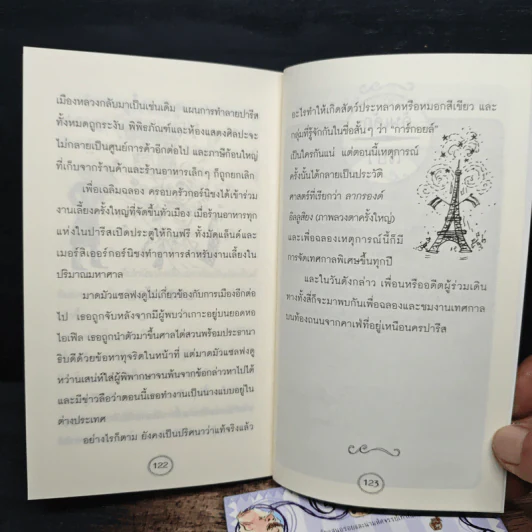 เมืองหลวงกลับมาเป็นเช่นเดิม แผนการทำลายปารีส
ทั้งหมดถูกระงับ พิพิธภัณฑ์และห้องแสดงศิลปะจะ
ไม่กลายเป็นศูนย์การค้าอีกต่อไป และภาษีก้อนใหญ่
ที่เก็บจากร้านค้าและร้านอาหารเล็กๆ ก็ถูกยกเลิก
เพื่อเฉลิมฉลอง ครอบครัวกอร์นิชงได้เข้าร่วม
งานเลี้ยงครั้งใหญ่ที่จัดขึ้นทั่วเมือง เมื่อร้านอาหารทุก
แห่งในปารีสเปิดประตูให้กินฟรี ทั้งมัดแล็นต์และ
เมอร์ลิเออร์กอร์นิชงทำอาหารสำหรับงานเลี้ยงใน
ปริมาณมหาศาล
มาดมัวแซลฟงดูไม่เกี่ยวข้องกับการเมืองอีกต่อ
ไป เธอถูกจับหลังจากมีผู้พบว่าเกาะอยู่บนยอดหอ
ไอเฟิล เธอถูกนำตัวมาขึ้นศาลไต่สวนพร้อมประธานา
ธิบดีด้วยข้อหาทุจริตในหน้าที่ แต่มาดมัวแซลฟงดู
หว่านเสน่ห์ใส่ผู้พิพากษาจนพ้นจากข้อกล่าวหาไปได้
และมีข่าวลือว่าตอนนี้เธอทำงานเป็นนางแบบอยู่ใน
ต่างประเทศ
อย่างไรก็ตาม ยังคงเป็นปริศนาว่าแท้จริงแล้ว
122
อะไรทำให้เกิดสัตว์ประหลาดหรือหมอกสีเขียว และ
กลุ่มที่รู้จักกันในชื่อสั้นๆ ว่า "การ์กอยล์"
เป็นใครกันแน่ แต่ตอนนี้เหตุการณ์
ครั้งนั้นได้กลายเป็นประวัติ
ศาสตร์ที่เรียกว่า ลากรองด์
อิลลูสียง (ภาพลวงตาครั้งใหญ่)
และเพื่อฉลองเหตุการณ์นี้ก็มี
การจัดเทศกาลพิเศษขึ้นทุกปี
และในวันดังกล่าว เพื่อนหรืออดีตผู้ร่วมเดิน
ทางทั้งสี่ก็จะมาพบกันเพื่อฉลองและชมงานเทศกาล
บนท้องถนนจากคาเฟ่ที่อยู่เหนือนครปารีส
123